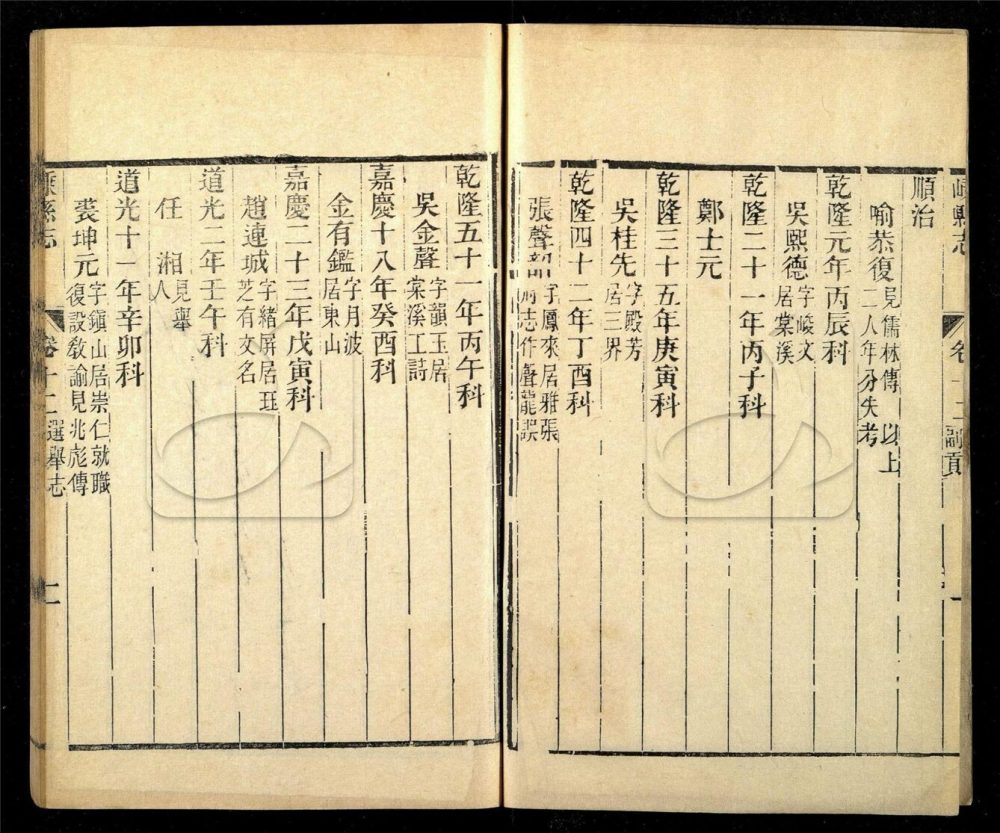 嵊縣志 卷十二 副貢 一
順治
喻恭復見儒林傳 以上
二人年分失考
乾隆元年丙辰科
吳熙德字峻文
居棠溪
乾隆二十一年丙子科
鄭士元
乾隆三十五年庚寅科
吳桂先字殿芳
居三界
乾隆四十二年丁酉科
張聲韶字鳳來居雅張
府志作聲龍誤
乾隆五十一年丙午科
吳金聲字韻玉居
棠溪工詩
嘉慶十八年癸酉科
金有鑑字月波
居東山
嘉慶二十三年戊寅科
趙連城字緒屏居珏
芝有文名
道光二年壬午科
任湘見舉
人
道光十一年辛卯科
裘坤元字鎮山居崇仁就職
復設教諭見兆彪傳
嵊縣志 卷十二選舉志 二